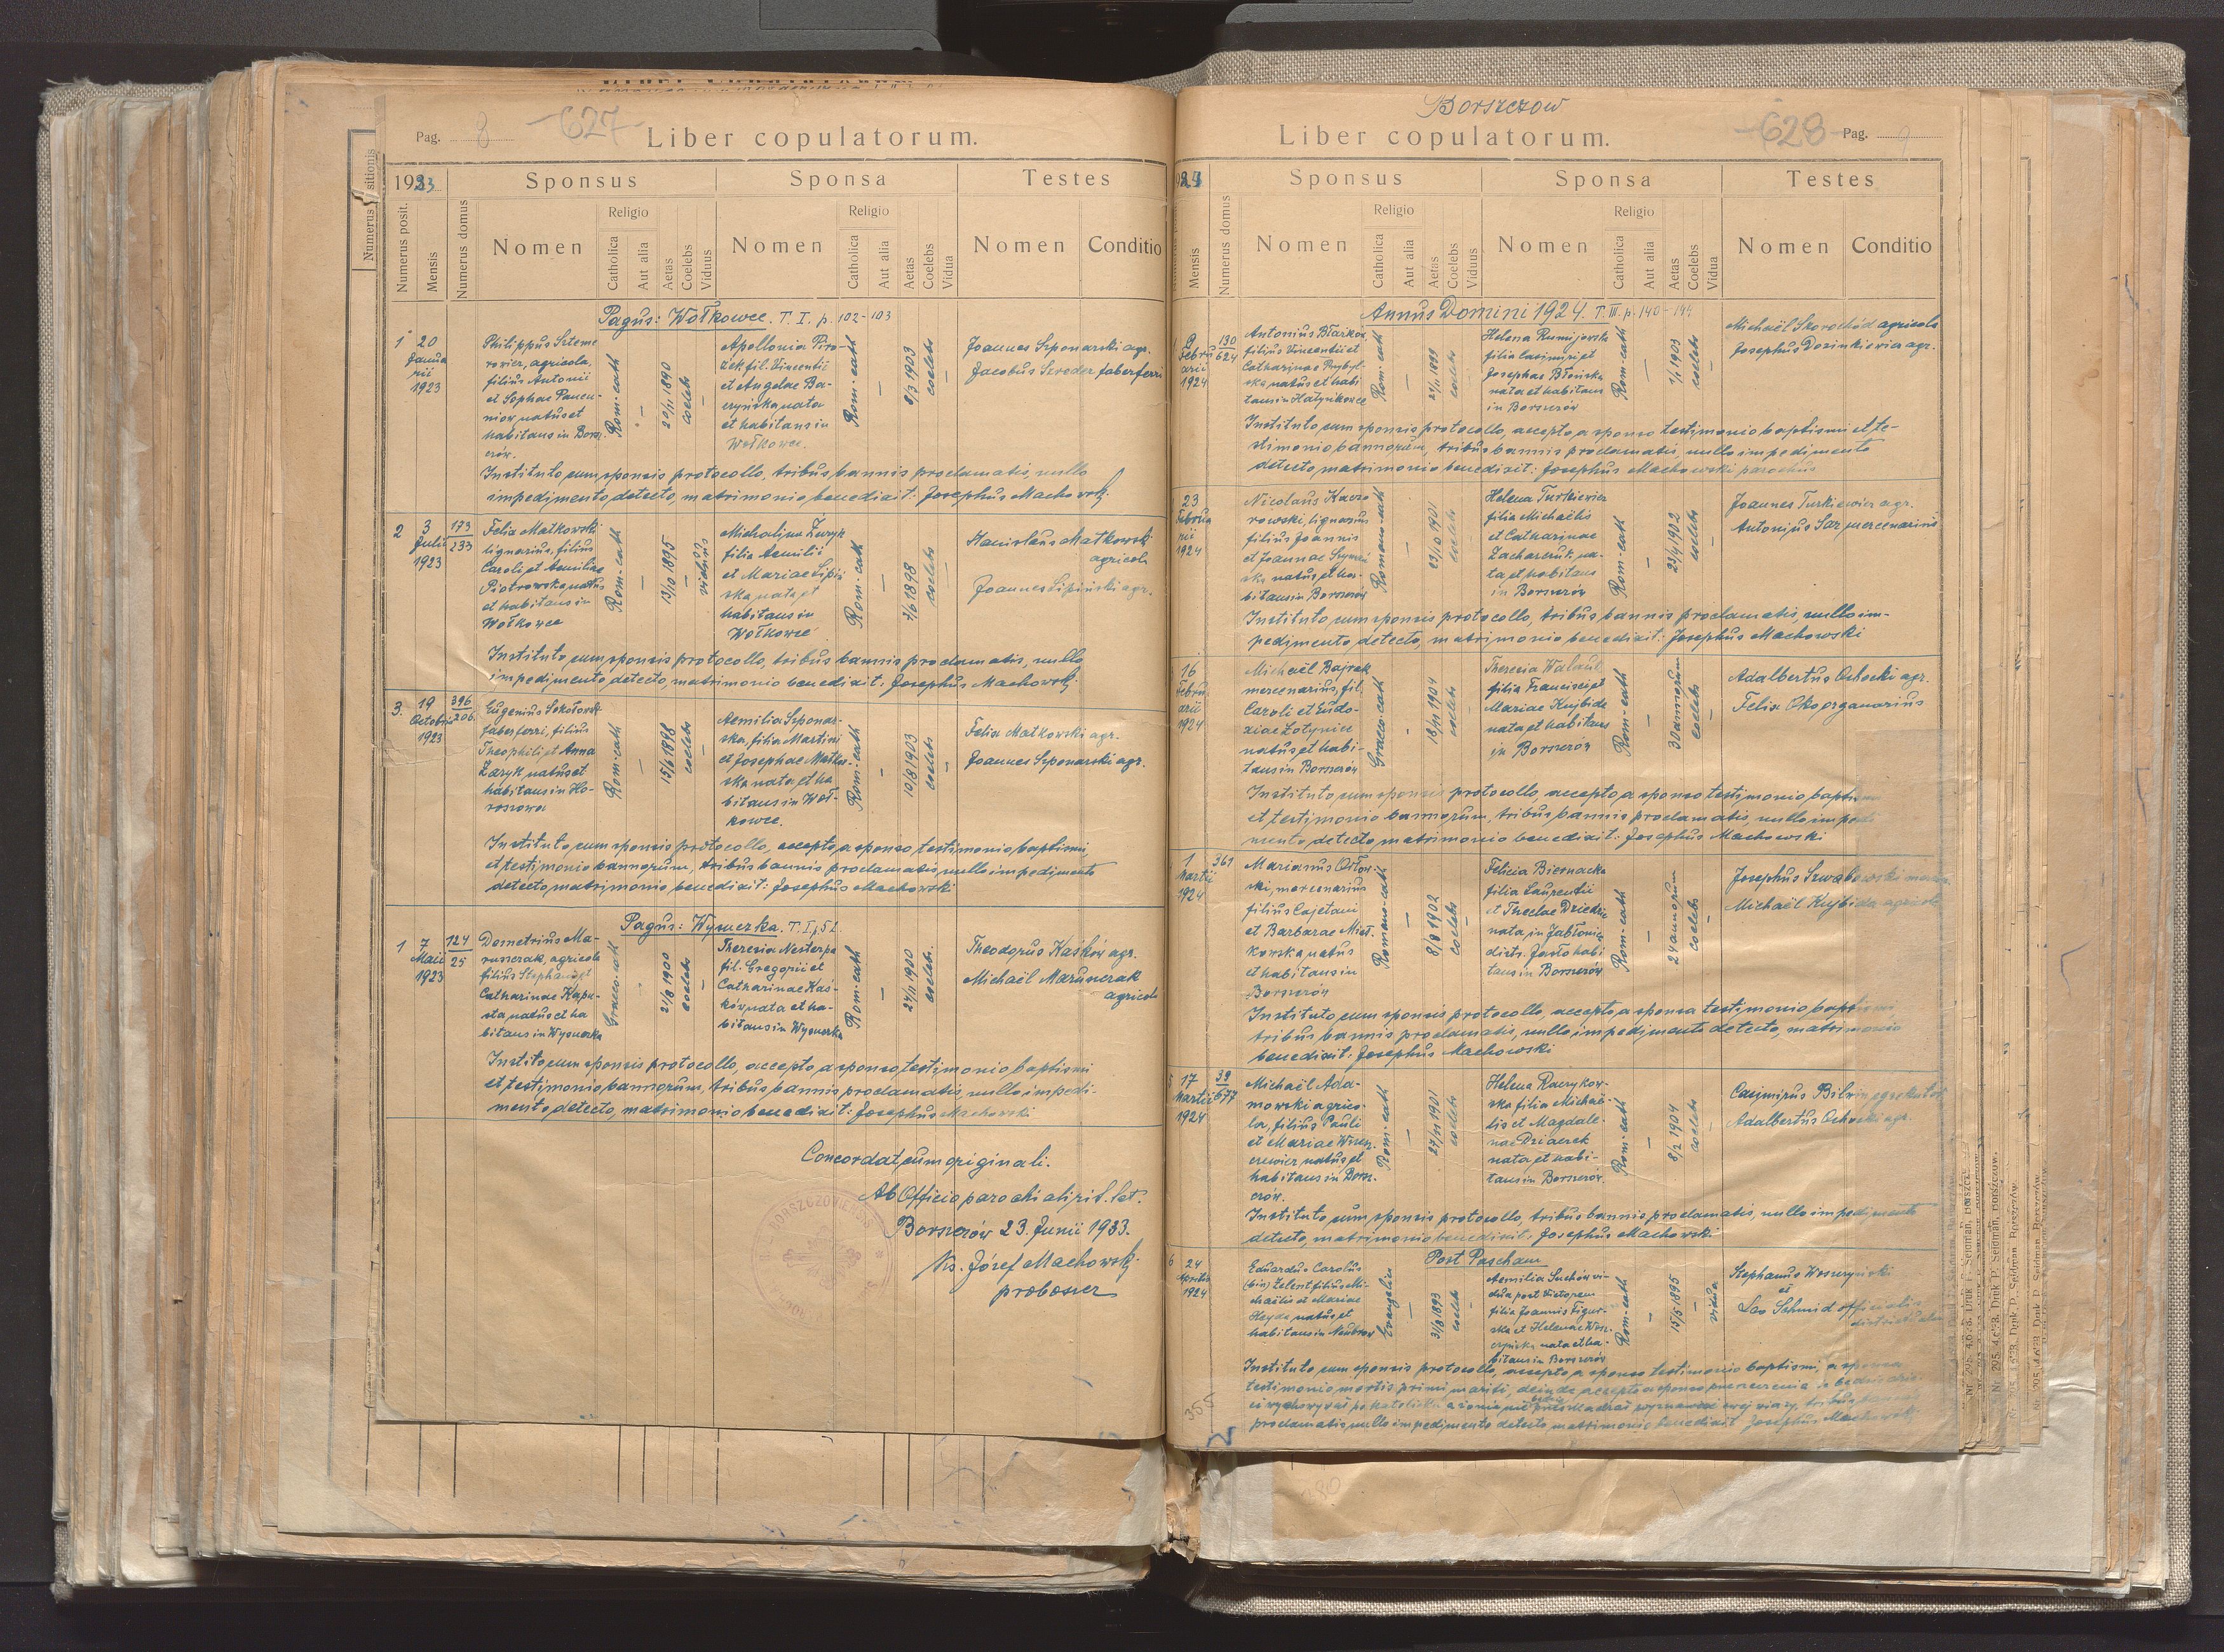 Pag. 8
-627-
Liber copulatorum.
1923
Sponsus
Sponsa
Testes
Numerus posit.
Mensis
Numerus domus
Nomen
Religio
Catholica
Aut alia
Aetas
Coelebs
Viduus
Nomen
Religio
Catholica
Aut alia
Aetas
Coelebs
Vidua
Nomen
Conditio
Pagus: Wołkowce. T. I. p. 102-103
1
20
Janua
rii
1923
Philippus
agricola,
filius Antonii
et Sophae
natus et
habitans in Borsz-
czów.
Rom-cath
20/11 1890
coelebs
Apollonia
fil. Vincentii
et Angelae Ba-
nata
et habitans in
Wołkowce.
Rom-cath
8/3 1903
coelebs
Joannes Szponarski agr.
Jacobus Szreder faber ferri
Instituto cum sponsis protocollo, tribus bannis proclamatis, nullo
impedimento detecto, matrimonio benedixit: Josephus Machowski.
2
3
Julii
1923
173
233
Felix Matkowski
lignarius, filius
Caroli et Aemiliae
Piotrowska natus
et habitans in
Wołkowce
Rom-cath
13/10 1895
viduus
Michalina
filia Aemilii
et Mariae Lipiń
ska nata et
habitans in
Wołkowce
Rom-cath
7/6 1898
coelebs
Stanislaus Matkowski
agricola
Joannes Lipiński agr.
Instituto cum sponsis protocollo, tribus bannis proclamatis, nullo
impedimento detecto, matrimonio benedixit: Josephus Machowski
3.
19
Octobris
1923
396
206
Eugenius Sokołowski
faber ferri, filius
Theophili et Anna
Zaryk natus et
habitans in Ho-
roszowa
Rom-cath
15/6 1898
coelebs
Aemilia Szponar-
ska, filia Martini
et Josephae Matkow-
ska nata et ha
bitans in Woł-
kowce.
Rom-cath
10/8 1903
coelebs
Felix Matkowski agr.
Joannes Szponarski agr.
Instituto cum sponsis protocollo, accepto a sponso testimonio baptismi,
et testimonio bannorum, tribus bannis proclamatis, nullo impedimento
detecto, matrimonio benedixit: Josephus Machowski
Pagus: Wysuczka. T. I p. 51.
1
7
Maii
1923
124
25
Demetrius Ma-
ruszczak, agricola
filius Stephani et
Catharinae Kapu-
sta natus et ha
bitans in Wysuczka
Graeco-cath
21/8 1900
coelebs
Theresia Nesterpa
fil. Gregorii et
Catharinae Kaś-
ków nata et ha-
bitans in Wysuczka
Rom-cath
24/11 1900
coelebs.
Theodorus Kaśków agr.
Michaël Maruszczak
agricola
Instituto cum sponsis protocollo, accepto a sponso testimonio baptismi
et testimonio bannorum, tribus bannis proclamatis, nullo impedi-
mento detecto, matrimonio benedixit: Josephus Machowski
Concordat cum originali.
Ab Officio parochiali rit. lat.
Borszczów 23. Junii 1933.
Ks. Józef Machowski
proboszcz
Borszczow
Liber copulatorum.
-628-
Pag. 9
Sponsus
Sponsa
Testes
Mensis
Numerus domus
Nomen
Religio
Catholica
Aut alia
Aetas
Coelebs
Viduus
Nomen
Religio
Catholica
Aut alia
Aetas
Coelebs
Vidua
Nomen
Conditio
Annus Domini 1924. T. III. p. 140-144
9
Febru
arii
1924
130
624
Antonius
filius Vincentii et
Catharinae Przybyl-
ska natus et habi
tans in
Rom-cath
coelebs
Helena
filia Casimiri et
Josephae Błońska
nata et habitans
in Borszczów
Rom-cath
1/1 1903
coelebs
Michaël Skorochód agricola
Josephus Dozinkiewicz agr.
Instituto cum sponsis protocollo, accepto a sponso testimonio baptismi et te-
stimonio bannorum, tribus bannis proclamatis, nullo impedimento
detecto, matrimonio benedixit: Josephus Machowski parochus
23
Februa
rii
1924
Nicolaus Kacze
rowski, lignarius
filius Joannis
et Joannae
natus et ha-
bitans in Borszczów
Romano-cath
23/10 1901
coelebs
Helena Turkiewicz
filia Michaëlis
et Catharinae
Zacharczuk, na-
ta et habitans
in Borszczów
Rom-cath
23/4 1902
coelebs
Joannes Turkiewicz agr.
Antonius Sar mercenarius
Instituto cum sponsis protocollo, tribus bannis proclamatis, nullo im-
pedimento detecto, matrimonio benedixit: Josephus Machowski
16
Febru
arii
1924
Michaël Bajrak
mercenarius, fil.
Caroli et Eudo-
xiae Zotynice
natus et habi-
tans in Borszczów
Graeco-cath
18/11 1904
coelebs
Theresia
filia Francisci et
Mariae Knybida
nata et habitans
in Borszczów
Rom-cath
30 annorum
coelebs
Adalbertus Ochocki agr.
Felix Oko organarius
Instituto cum sponsis protocollo, accepto a sponso testimonio
et testimonio bannorum, tribus bannis proclamatis, nullo impedi
mento detecto matrimonio benedixit: Josephus Machowski
1
Martii
1924
361
Marianus Orłow
ski, mercenarius
filius Cajetani
et Barbarae Miel-
kowska natus
et habitans in
Borszczów
Romano-cath
8/8 1902
coelebs
Felicia Biernacka
filia Laurentii
et Theclae Dziedzic
nata in Jabłonica
distr. Jasło habi
tans in Borszczów
Rom-cath
24 annorum
coelebs
Josephus
Michaël Knybida agricola
Instituto cum sponsis protocollo, accepto a sponsa testimonio baptismi,
tribus bannis proclamatis, nullo impedimento detecto, matrimonio
benedixit: Josephus Machowski
5
17
Martii
1924
39
677
Michaël Ada-
mowski agrico-
la, filius Pauli
et Mariae Wincz-
natus et
habitans in Borsz-
czów.
Rom-cath
27/11 1901
coelebs
Helena Raczykow-
ska filia Michaë-
lis et Magdale-
nae Dziaczek
nata et habi-
tans in Borszczów.
Rom-cath
8/2 1904
coelebs
Casimirus Bilwin
Adalbertus Ochocki agr.
Instituto cum sponsis protocollo, tribus bannis proclamatis, nullo impedimento
detecto, matrimonio benedixit: Josephus Machowski
Post Pascham
6
24
Aprilis
1924
Eduardus Carolus
(bin) Zelent filius Mi-
chaëlis et Mariae
Heyda natus et
habitans in
Evangelica
31/8 1893
coelebs
Aemilia Suchów vi-
dua post Victorem
filia Joannis Figur-
ska et Helenae
nata et ha-
bitans in Borszczów
Rom-cath
15/5 1895
vidua
Stephanus
et
Leo Schmid officialis
Instituto cum sponsis protocollo, accepto a sponso testimonio baptismi, a sponsa
testimonio mortis primi mariti, deinde accepto a sponso
proclamatis, nullo impedimento detecto matrimonio benedixit Josephus Machowski
355